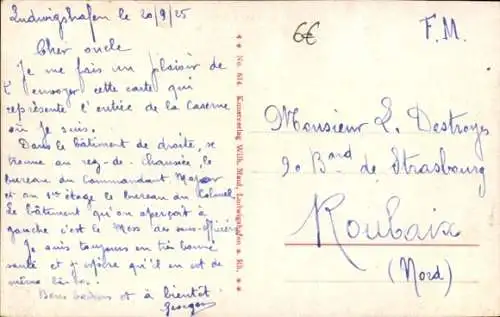 Ludwigshafen le 20/9/25
Cher oncle
Je me fais un plaisir de
t'envoyer cette carte qui
représente l'entrée de la Caserne
où je suis.
Dans le bâtiment de droite, se
trouve au rez-de-chaussée, le
bureau du Commandant Major
et au 1er étage le bureau du Colonel.
Le bâtiment qu'on aperçoit à
gauche c'est le Mess des sous-officiers
Je suis toujours en très bonne
santé et j'espère qu'il en est de
même
Bons baisers et à bientôt
Georges
No. 514 Kunstverlag Wilh. Maul, Ludwigshafen a. Rh.
6€
F.M.
Monsieur L. Destroyes
90 Bard de Strasbourg
Roubaix
(Nord)